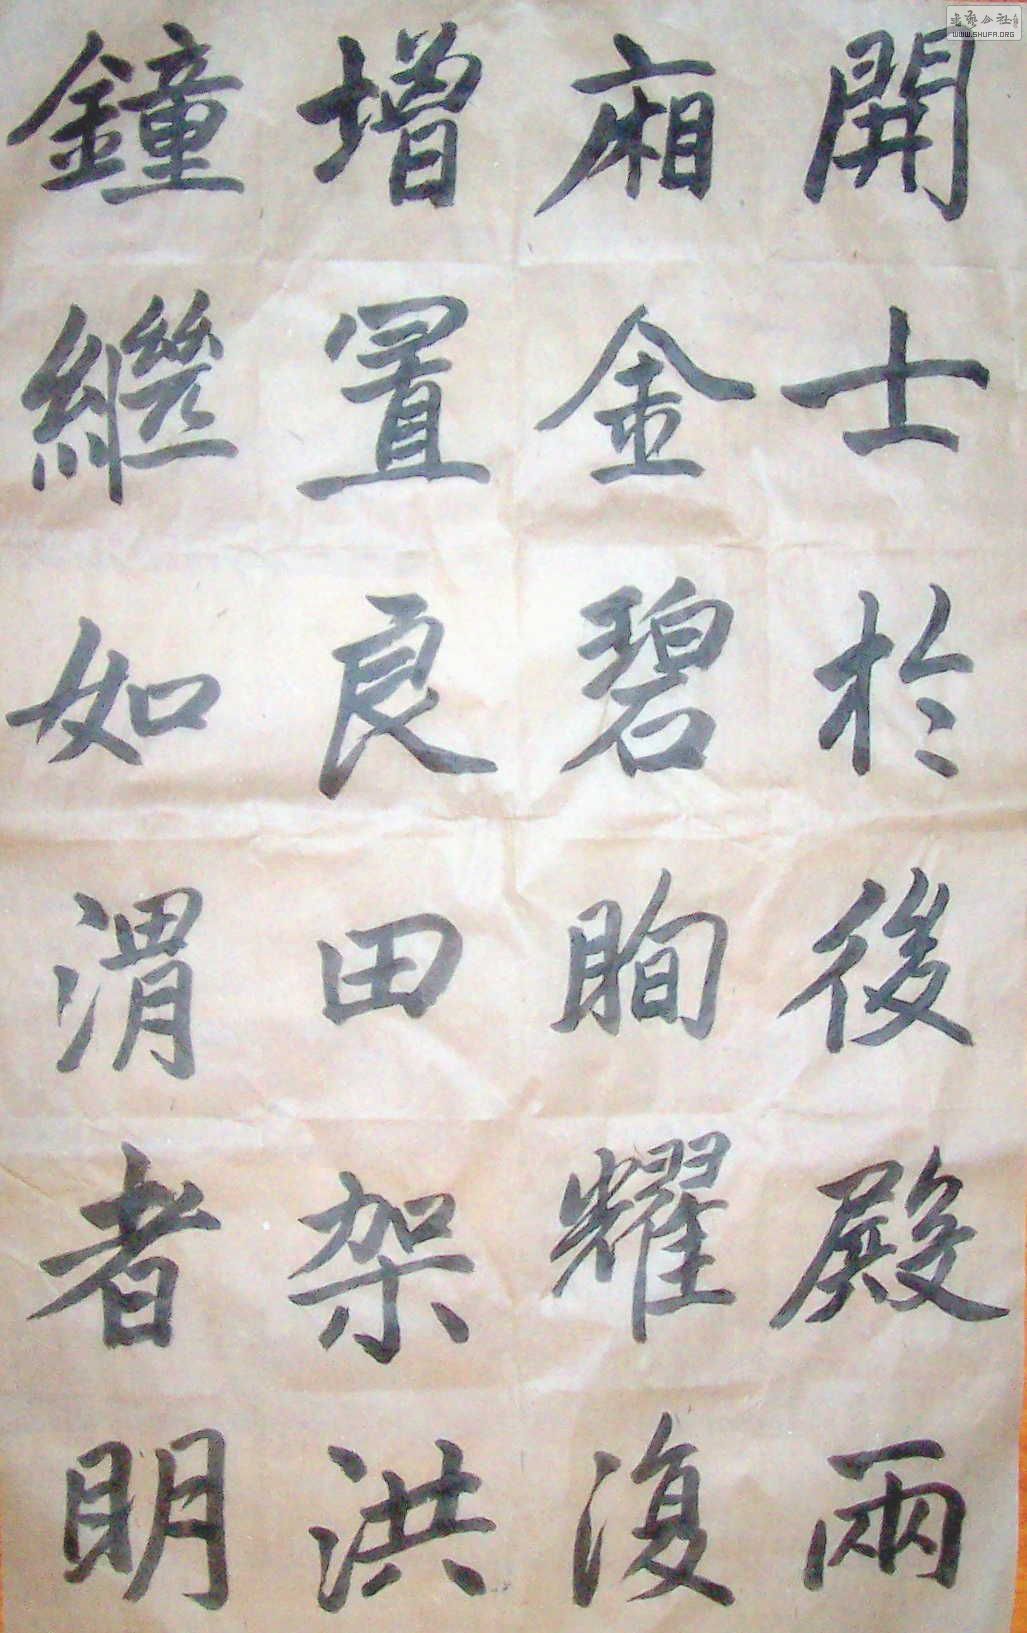 開士於後殿兩
廂金碧眴耀復
增置良田架洪
鐘繼如渭者明
WWW.SHUFA.ORG